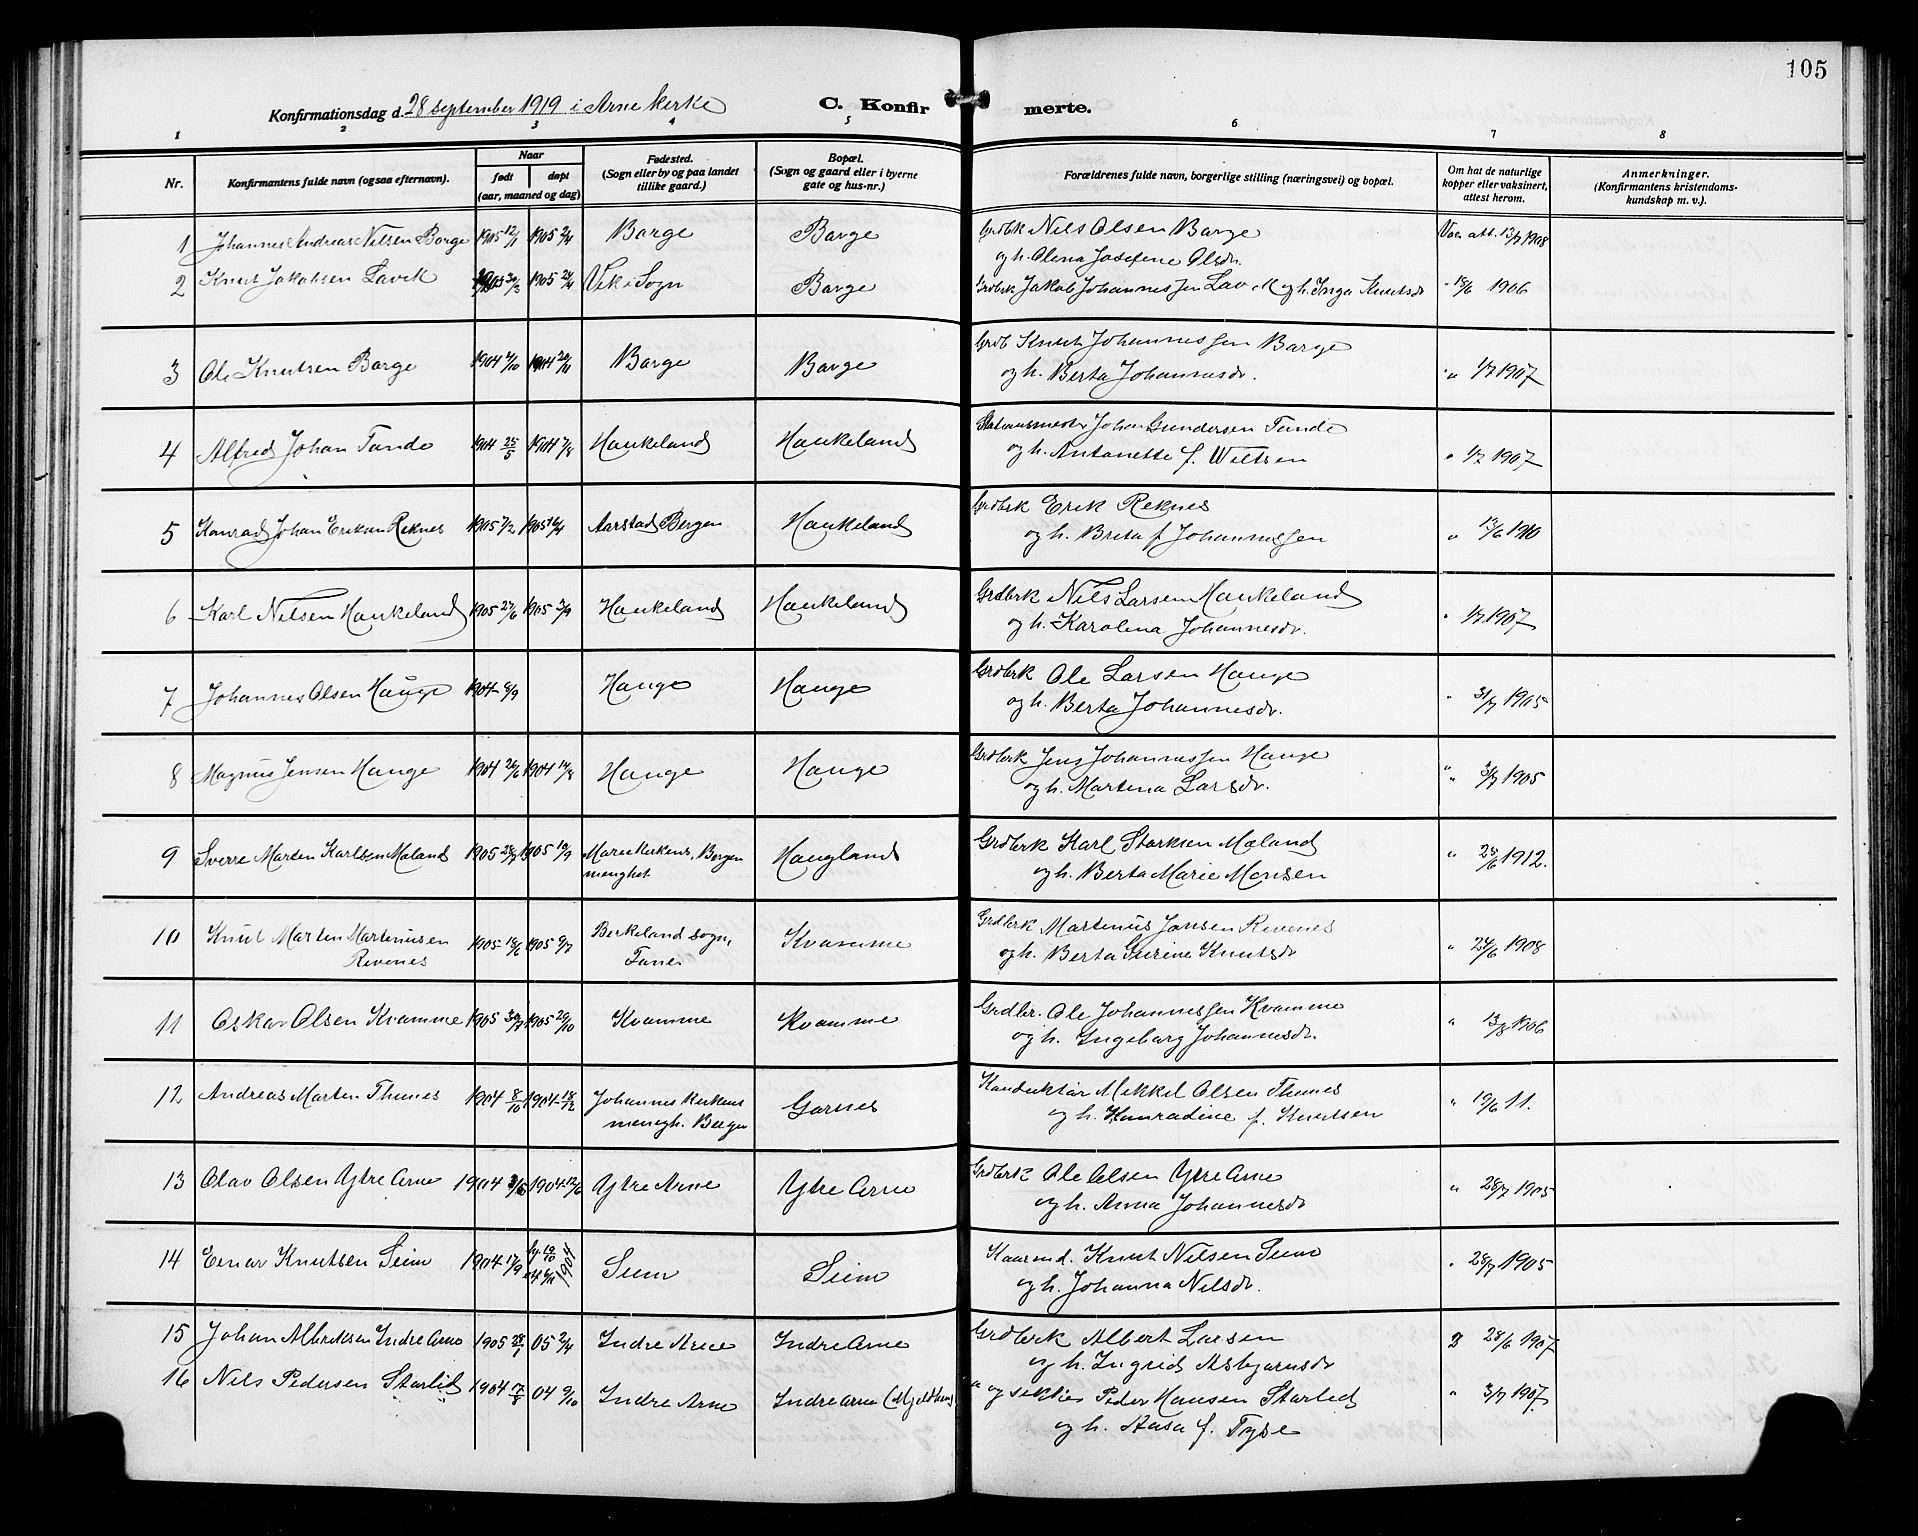 105
Konfirmationsdag d. 28 september 1919 i Arne kirke C. Konfirmerte.
1 2 3 4 5 6 7 8
Nr. Konfirmantens fulde navn (ogsaa efternavn). Naar født døpt (aar, maaned og dag) Fødested. (Sogn eller by og paa landet tillike gaard.) Bopæl. (Sogn og gaard eller i byerne gate og hus-nr.) Forældrenes fulde navn, borgerlige stilling (næringsvei) og bopæl. Om hat de naturlige kopper eller vaksinert, attest herom. Anmerkninger. (Konfirmantens kristendomskundskap m. v.).
1 Johannes Andreas Nilsen Borge 1905 12/1 1905 2/4 Borge Borge Grdbrk Nils Olsen Borge Vac. att. 13/7 1908
og h. Olina Josefine Olsdr.
2 Knut Jakobsen Lavik 1905 1905 24/4 Vik i Sogn Borge Grdbrk Jakob Johannessen Lavik og h. Inga Knutsdr " 18/6 1906
3 Ole Knutsen Borge 1904 1904 Borge Borge Grdb Knut Johannessen Borge
og h. Berta Johannesdr. " 1/7 1907
4 Alfred Johan Tunde 1904 25/5 1904 7/8 Haukeland Haukeland Stationsmester Johan Gundersen Tunde
og h. Antonette f. Wiltsen " 1/7 1907
5 Konrad Johan Erikson Reknes 1905 7/2 1905 16/4 Aarstad Bergen Haukeland Grdbrk Erik Reknes
og h. Brita f Johannessen " 13/6 1910
6 Karl Nilsen Haukeland 1905 27/6 1905 3/9 Haukeland Haukeland Grdbrk Nils Larsen Haukeland
og h. Karolina Johannesdr. " 1/7 1907
7 Johannes Olsen Hauge 1904 Hauge Hauge Grdbrk Ole Larsen Hauge
og h. Berta Johannesdr. " 31/7 1905
8 Magnus Jensen Hauge 1904 26/6 1904 14/8 Hauge Hauge Grdbrk Jens Johannessen Hauge
og h. Martina Larsdr. " 31/7 1905
9 Sverre Martin Karlsen Mæland 1905 1905 10/9 Mariekirkens, Bergen Haugland Grdbrk Karl Storksen Mæland
menighet og h. Berta Marie Monsen " 25/6 1912.
10 Knut Martin Martinusen 1905 18/6 1905 9/7 Birkeland sogn, Kvamme Grdbrk Martinus Jansen Revenes
Revenes Fane og h. Berta Gurine Knutsdr " 24/6 1908
11 Oskar Olsen Kvamme 1905 30/9 1905 29/10 Kvamme Kvamme Grdbr. Ole Johannessen Kvamme
og h. Ingeborg Johannesdr. " 13/8 1906
12 Andreas Martin Thunes 1904 8/10 1904 18/12 Johannes kirkens Garnes Konduktør Mikkel Olsen Thunes
menigh. Bergen og h. Konradine f. Knutsen " 19/6 11.
13 Olav Olsen Ytre Arne 1904 1904 12/6 Ytre Arne Ytre Arne Grdbrk Ole Olsen Ytre Arne
og h. Anna Johannesdr " 28/7 1905
14 Einar Knutsen Seim 1904 17/9 1904 Seim Seim Kaarmd. Knut Nilsen Seim
og h. Johanna Nilsdr. " 28/7 1905
15 Johan Albriktsen Indre Arne 1905 28/1 05 2/4 Indre Arne Indre Arne Grdbrk Albert Larsen 28/6 1907
og h. Ingrid Asbjørnsdr
16 Nils Pedersen Storlid 1904 17/8 04 9/10 Indre Arne Indre Arne (Mjeldheim) Peder Hansen Storlid " 3/7 1907
og h. Aasa f. Tyse